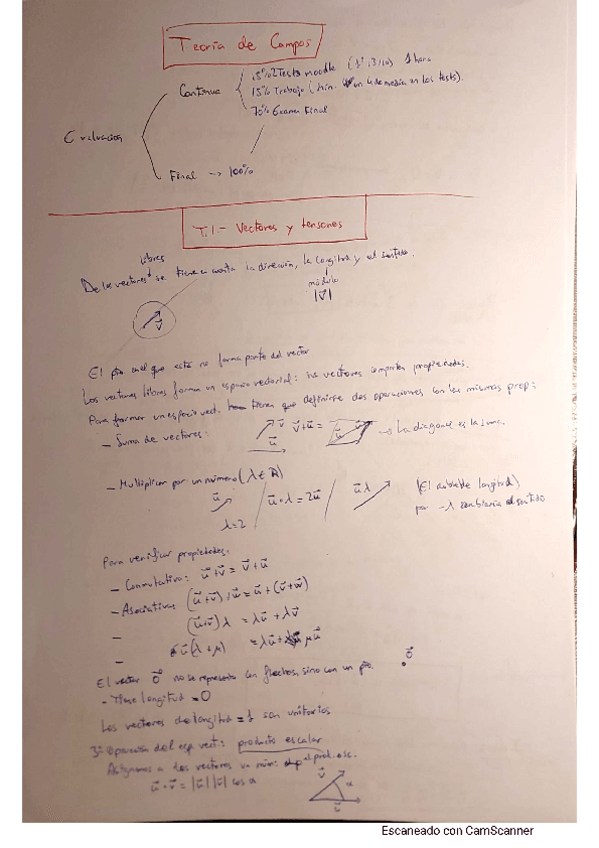 Teoría de Campos
15% 2 Tests moodle (1º, 3/10) 1 hora
Continua
15% Trabajo (min. un 4 de media en los tests).
70% Examen Final
Evaluación
Final → 100%
T.1 - Vectores y tensores
libres
De los vectores se tiene en cuenta la dirección, la longitud y el sentido.
módulo
|v⃗|
v⃗
El pto en el que esté no forma parte del vector
Los vectores libres forman un espacio vectorial: los vectores comparten propiedades.
Para formar un espacio vect. tienen que definirse dos operaciones con las mismas prop:
- Suma de vectores: v⃗ u⃗ v⃗+u⃗ = u⃗ v⃗ → La diagonal es la suma.
- Multiplicar por un número (λ ∈ R)
u⃗ λ=2 / u⃗·λ = 2u⃗ / u⃗λ (El doble de longitud)
por -λ cambiaría el sentido
Para verificar propiedades:
- Conmutativa: u⃗+v⃗ = v⃗+u⃗
- Asociativa: (u⃗+v⃗)+w⃗ = u⃗+(v⃗+w⃗)
- (u⃗+v⃗)λ = λu⃗ + λv⃗
- u⃗(λ+μ) = λu⃗ + μu⃗
El vector 0⃗ no se representa con flechas, sino con un pto. 0⃗
- Tiene longitud = 0
Los vectores de longitud = 1 son unitarios
3ª operación del esp. vect.: producto escalar
Asignamos a los vectores un núm: el prod. esc.
u⃗·v⃗ = |u⃗| |v⃗| cos α
v⃗ α u⃗
Escaneado con CamScanner